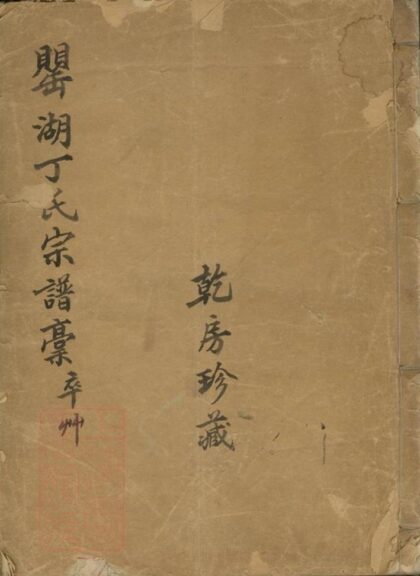 乾房珍藏
罌湖丁氏宗譜稾卒艸